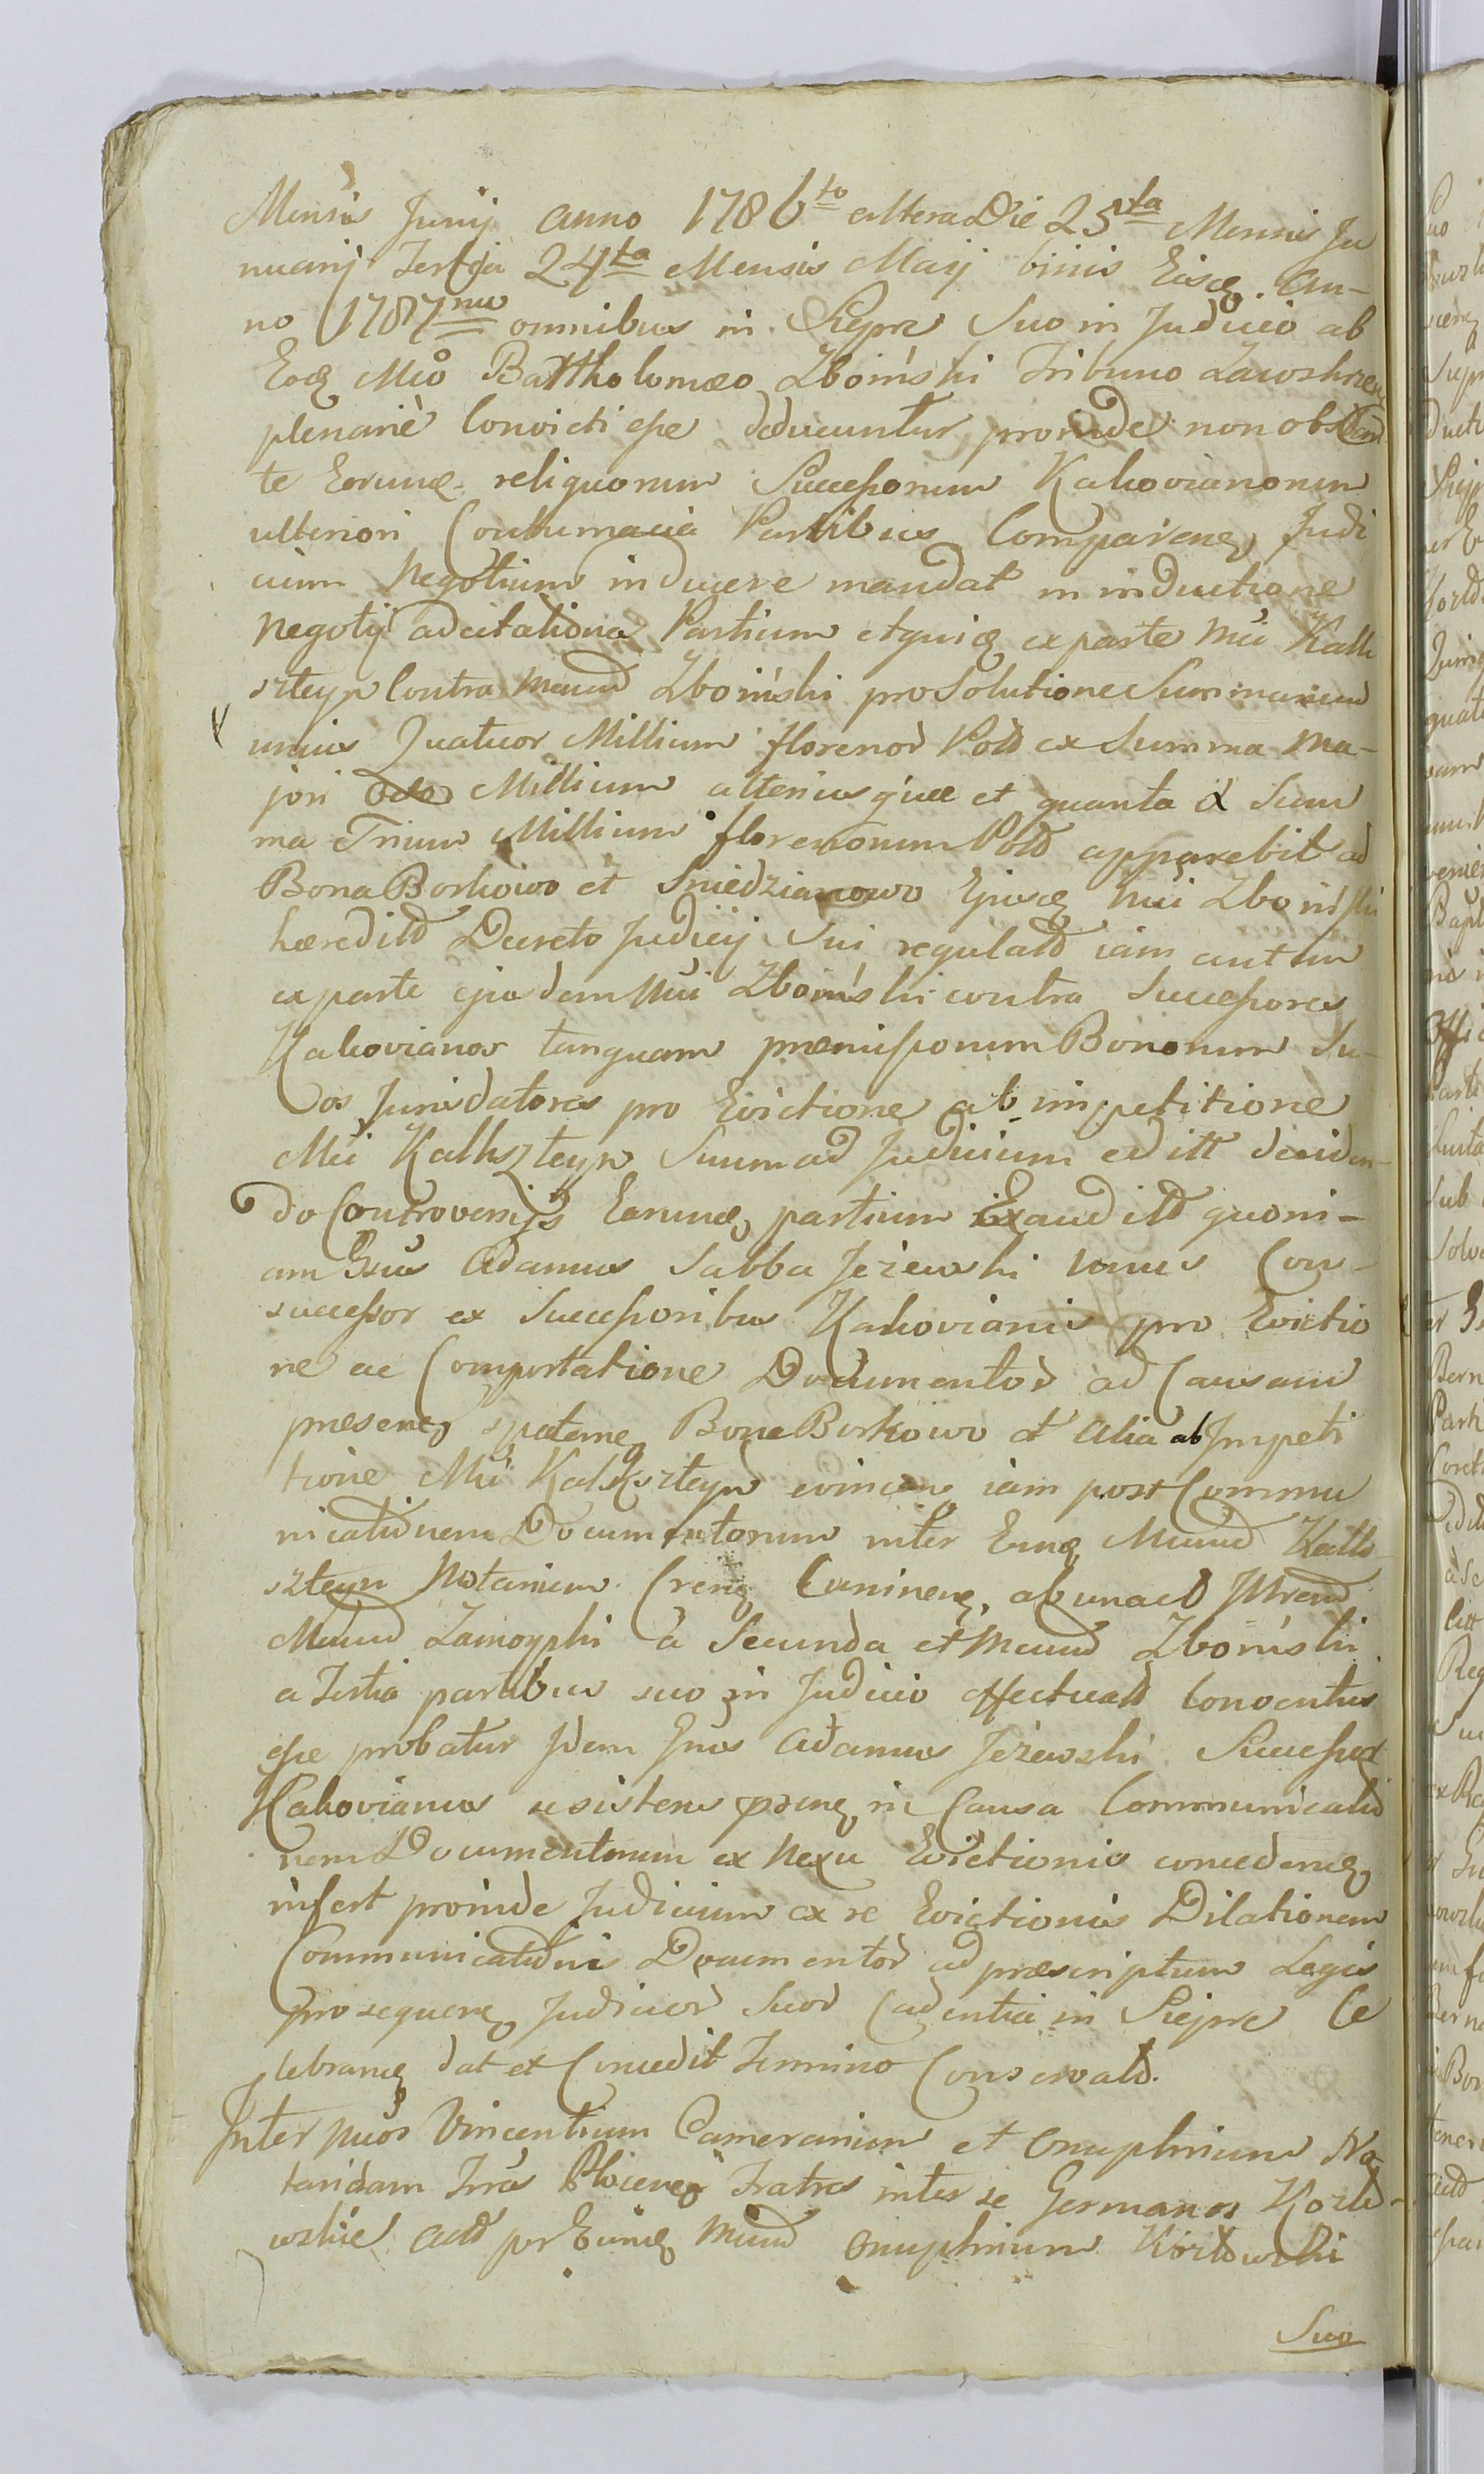 Mensis Junij anno 1786to altera Die 25ta Mensis Ja
nuarij Tertia 24ta Mensis Maij binis Eisq. An-
no 1787mo omnibus in Sieprc Suo in Judicio ab
Eoq Mco Barttholomæo Zboiński Tribuno Zawskrzen
plenariè Convicti esse deducuntur, proinde non obstan
te Eorunq reliquorum Successorum Kakovianorum
ulteriori Contumacia Partibus Comparenq Judi
cium Negotium inducere mandat in inductione
Negotij adcitationa Partium atquiq ex parte Mci Kalk
szteyn Contra Mcum Zboiński pro Solutione Summarum
unius Quatuor Millium florenor Pold ex Summa Ma-
jori Octo Millium alterius quæ et quanta è Sum
ma Trium Millium florenorum Pold apparebit ad
Bona Borkowo et Sniedzianowo Ejusq Mci Zboiński
hæredittd Decreto Judicij Sui regulatd iam autem
ex parte ejusdem Mci Zboiński contra Successores
Kakovianos tanquam præmissorum Bonorum Su-
os Jurisdatores pro Evictione ab impetitione
Mci Kalkszteyn Suum ad Judicium editt deciden-
do Controversijs Earunq partium Exauditd quoni-
am Gsus Adamus Sabba Jeżewski unus Con-
successor ex Successoribus Kakovianis pro Evictio
ne ac Comportatione Documentor ad Causam
presenq spatenq Bona Borkowo et alia ab Impeti
tione Mci Kalkszteyn evincenq iam post Commu
nicationem Documentorum inter Eunq Mcum Kalk
szteyn Notarium Crenq Caminenq, ab una ac Illrem
Mcum Zamoyski à Secunda et Mcum Zboiński
a Tertia partibus suo in Judicio effectuatd Convontus
esse probatur Idem Gsus Adamus Jeżewski Successor
Kakovianus resistens psenq in Causa Communicatio
nem Documentorum ex Nexu Evictionis concedenq
infert proinde Judicium ex re Evictionis Dilationem
Communicationis Documentor ad præscriptum Legis
prosequenq Judicior Suor Cadentia in Sieprc Ce
lebranq dat et Concedit Termino Conservatd.
Inter Mcos Vincentium Camerarium et Onuphrium No-
tarium Trrs Plocenq Fratres inter se Germanos Kozło-
wskie Actd per Eunq Mcum Onuphrium Kozłowski
Suo